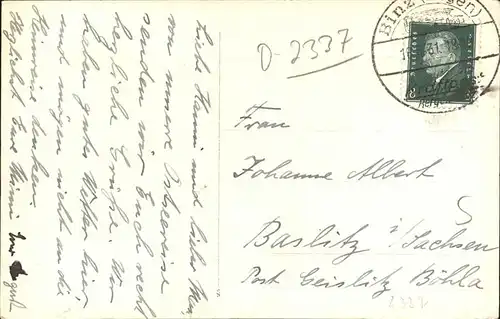 Liebe Hanni und lieber Max,
von unserer Ostseereise
senden wir Euch recht
herzliche Grüße. Wir
haben gutes Wetter hier
und mögen nicht an die
Heimreise denken.
Herzlichst Eure Mimi
D-2337
Binz (Rügen)
8
Frau
Johanne Albert
Baslitz i/Sachsen
Post Geislitz Böhla
2337